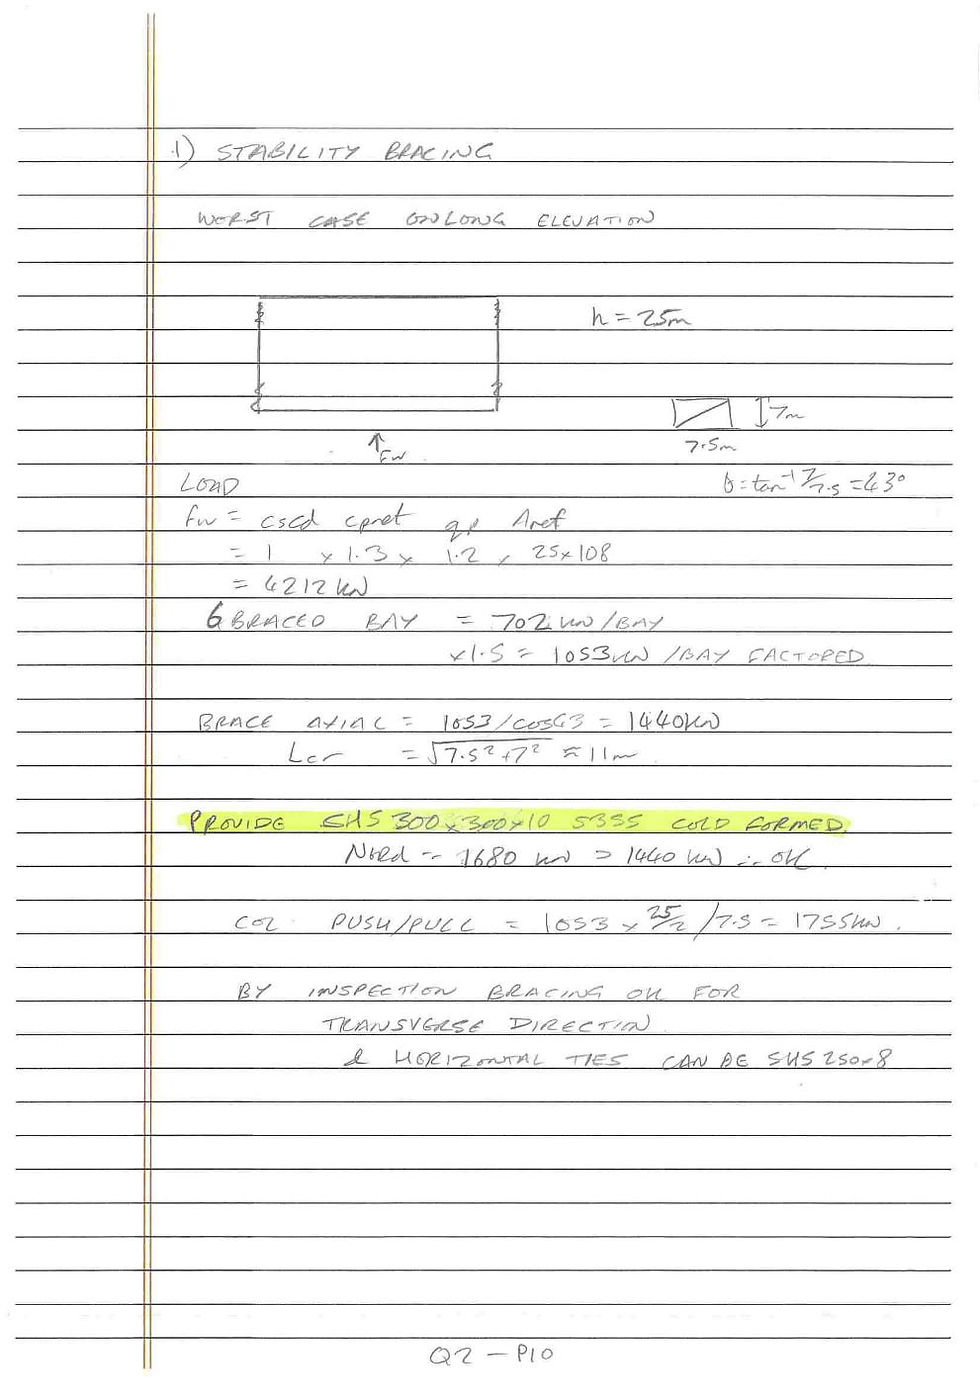 1) STABILITY BRACING
WORST CASE ON LONG ELEVATION
h = 25m
7m
7.5m
Fw
LOAD
θ = tan⁻¹ 7/7.5 = 43°
Fw = cscd cpnet qp Aref
= 1 x 1.3 x 1.2 x 25x108
= 4212 kN
6 BRACED BAY = 702 kN/BAY
x1.5 = 1053 kN /BAY FACTORED
BRACE AXIAL = 1053/cos43 = 1440kN
Lcr = √7.5²+7² ≈ 11m
PROVIDE SHS 300x300x10 S355 COLD FORMED.
Nbrd = 1680 kN > 1440 kN ∴ OK
COL PUSH/PULL = 1053 x 25/2 /7.5 = 1755kN.
BY INSPECTION BRACING OK FOR
TRANSVERSE DIRECTION
& HORIZONTAL TIES CAN BE SHS 250x8
Q2 - P10